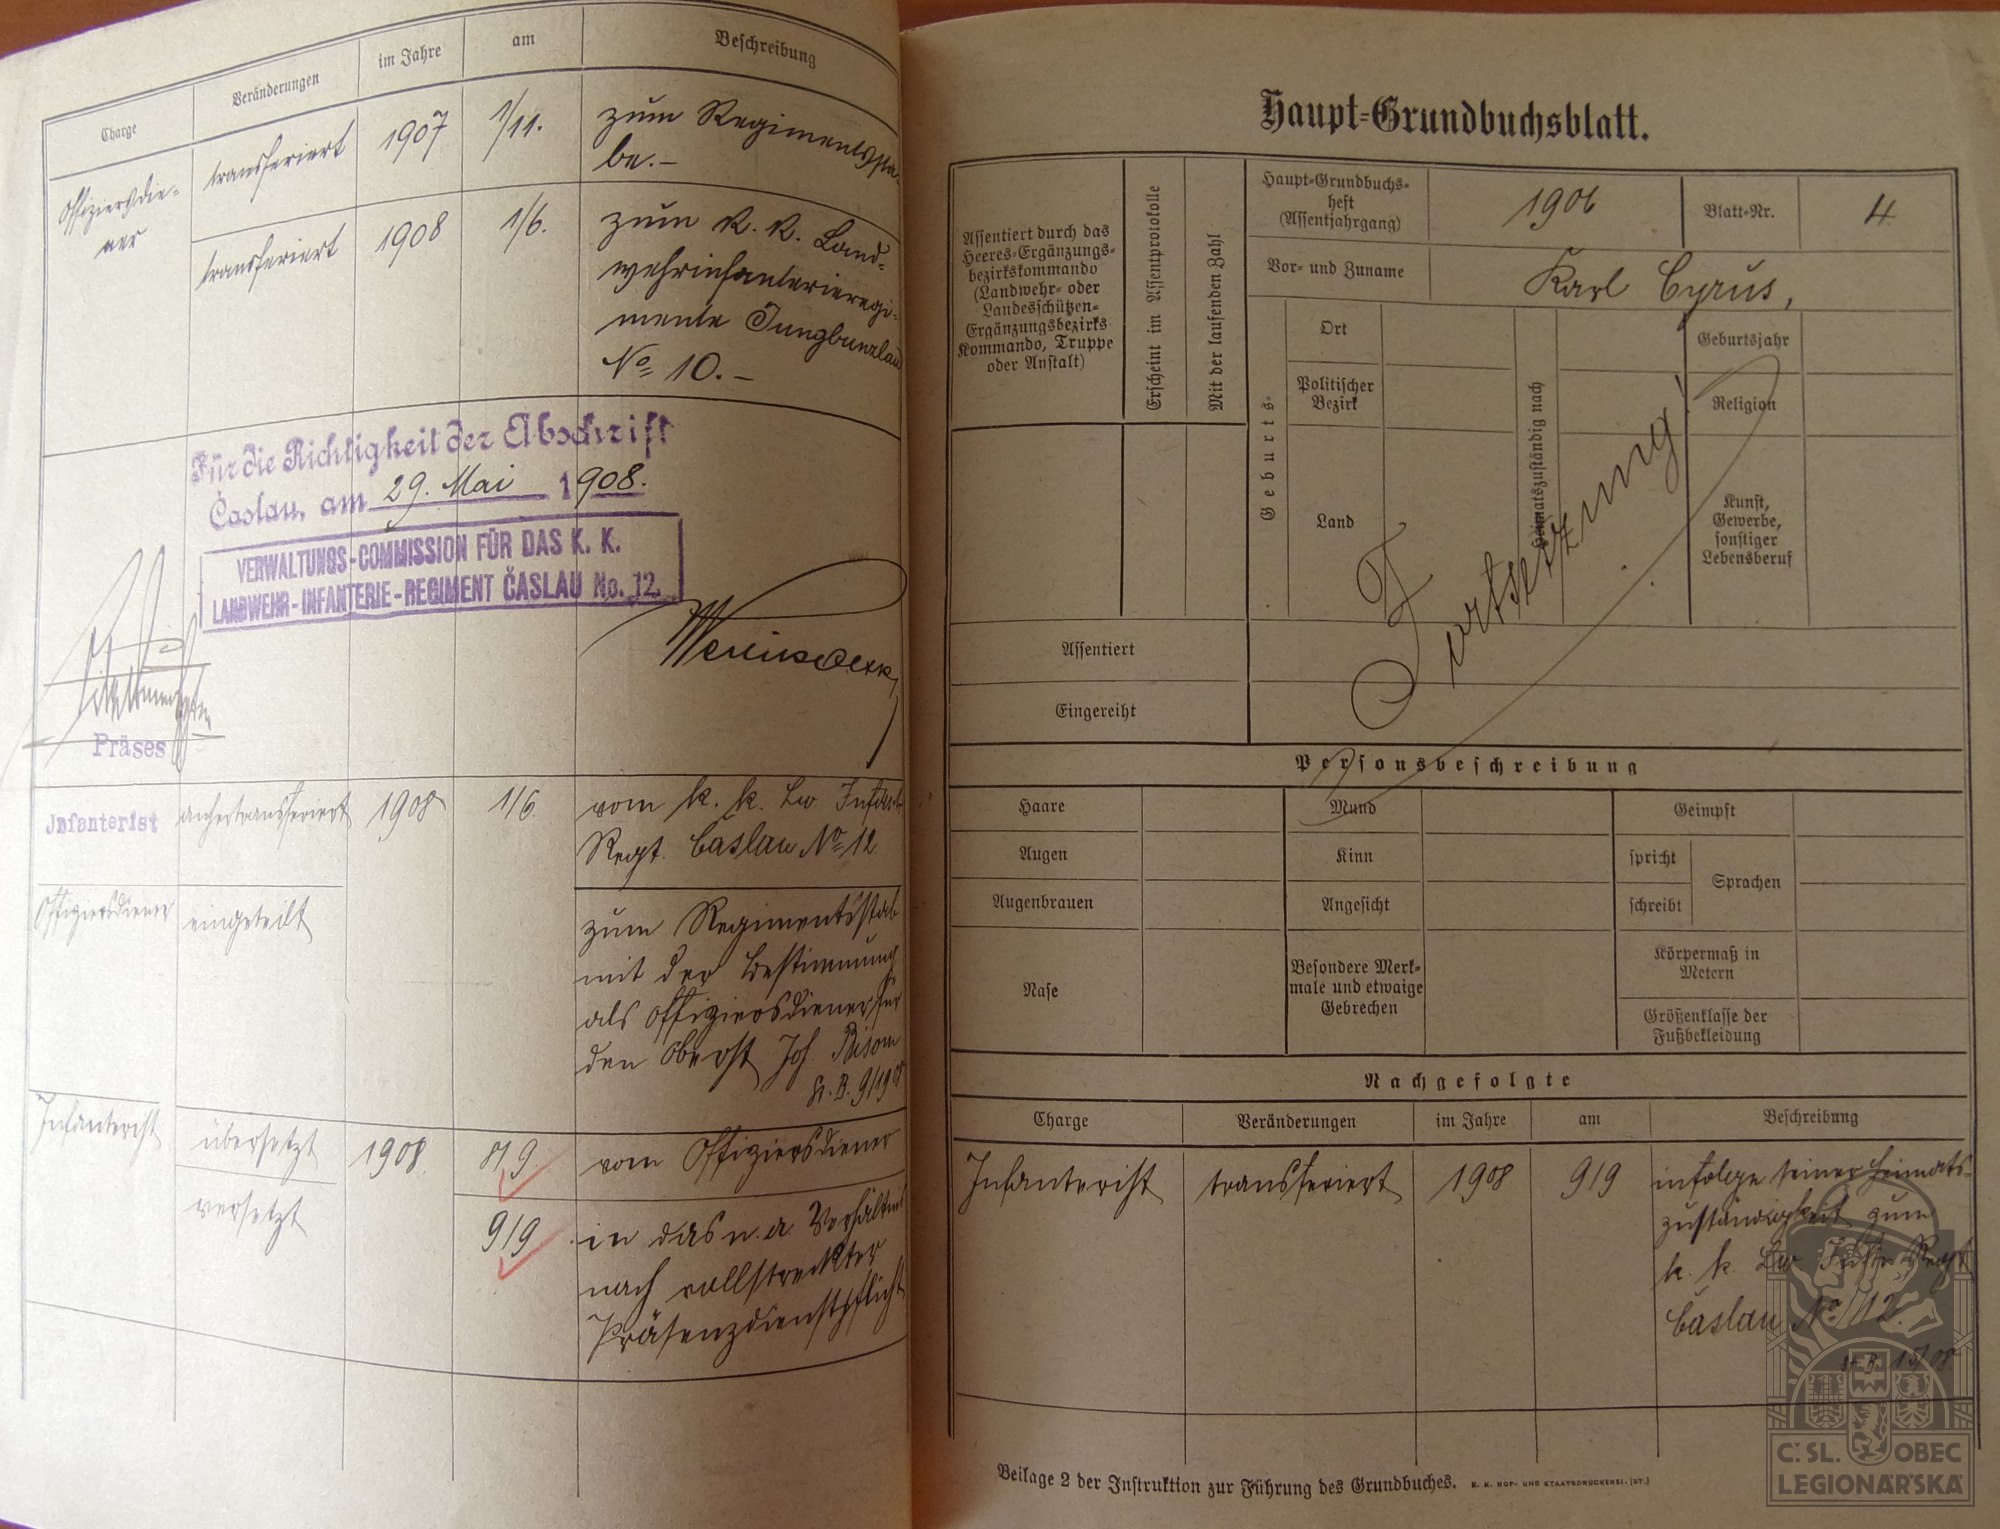 Charge
Veränderungen
im Jahre
am
Beschreibung
Offiziersdie-
ner
transferiert
1907
1/11.
zum Regimentssta-
be.-
transferiert
1908
1/6.
zum K. K. Land-
wehrinfanterieregi-
mente Jungbunzlau
No 10.-
Für die Richtigkeit der Abschrift
Časlau, am 29. Mai 1908.
VERWALTUNGS-COMMISSION FÜR DAS K. K.
LANDWEHR-INFANTERIE-REGIMENT ČASLAU No. 12.
Präses
Infanterist
anhertransferiert
1908
1/6.
vom k. k. Lw. Infant.
Regt. Časlau No 12
Offiziersdiener
eingeteilt
zum Regimentsstab
mit der Bestimmung
als Offiziersdiener für
den Oberst Joh.
Infanterist
übersetzt
1908.
8/9.
vom Offiziersdiener
versetzt
9/9
in das n. a. Verhältnis
nach vollstreckter
Präsenzdienstpflicht
Haupt-Grundbuchsblatt.
Assentiert durch das
Heeres-Ergänzungs-
bezirkskommando
(Landwehr- oder
Landesschützen-
Ergänzungsbezirks
Kommando, Truppe
oder Anstalt)
Erscheint im Assentprotokolle
Mit der laufenden Zahl
Haupt-Grundbuchs-
heft
(Assentjahrgang)
1906
Blatt-Nr.
4.
Vor- und Zuname
Karl Cyrus,
Geburts-
Ort
Politischer
Bezirk
Land
Heimatszuständig nach
Geburtsjahr
Religion
Kunst,
Gewerbe,
sonstiger
Lebensberuf
Fortsetzung!
Assentiert
Eingereiht
Personsbeschreibung
Haare
Mund
Geimpft
Augen
Kinn
spricht
Sprachen
Augenbrauen
Angesicht
schreibt
Nase
Besondere Merk-
male und etwaige
Gebrechen
Körpermaß in
Metern
Größenklasse der
Fußbekleidung
Nachgefolgte
Charge
Veränderungen
im Jahre
am
Beschreibung
Infanterist
transferiert
1908
9/9
infolge seiner Heimats-
zuständigkeit zum
k. k. Lw. Inftr. Regt
Časlau No 12.
Beilage 2 der Instruktion zur Führung des Grundbuches.
K. K. HOF- UND STAATSDRUCKEREI. (ST.)
Č. SL. OBEC
LEGIONÁŘSKÁ